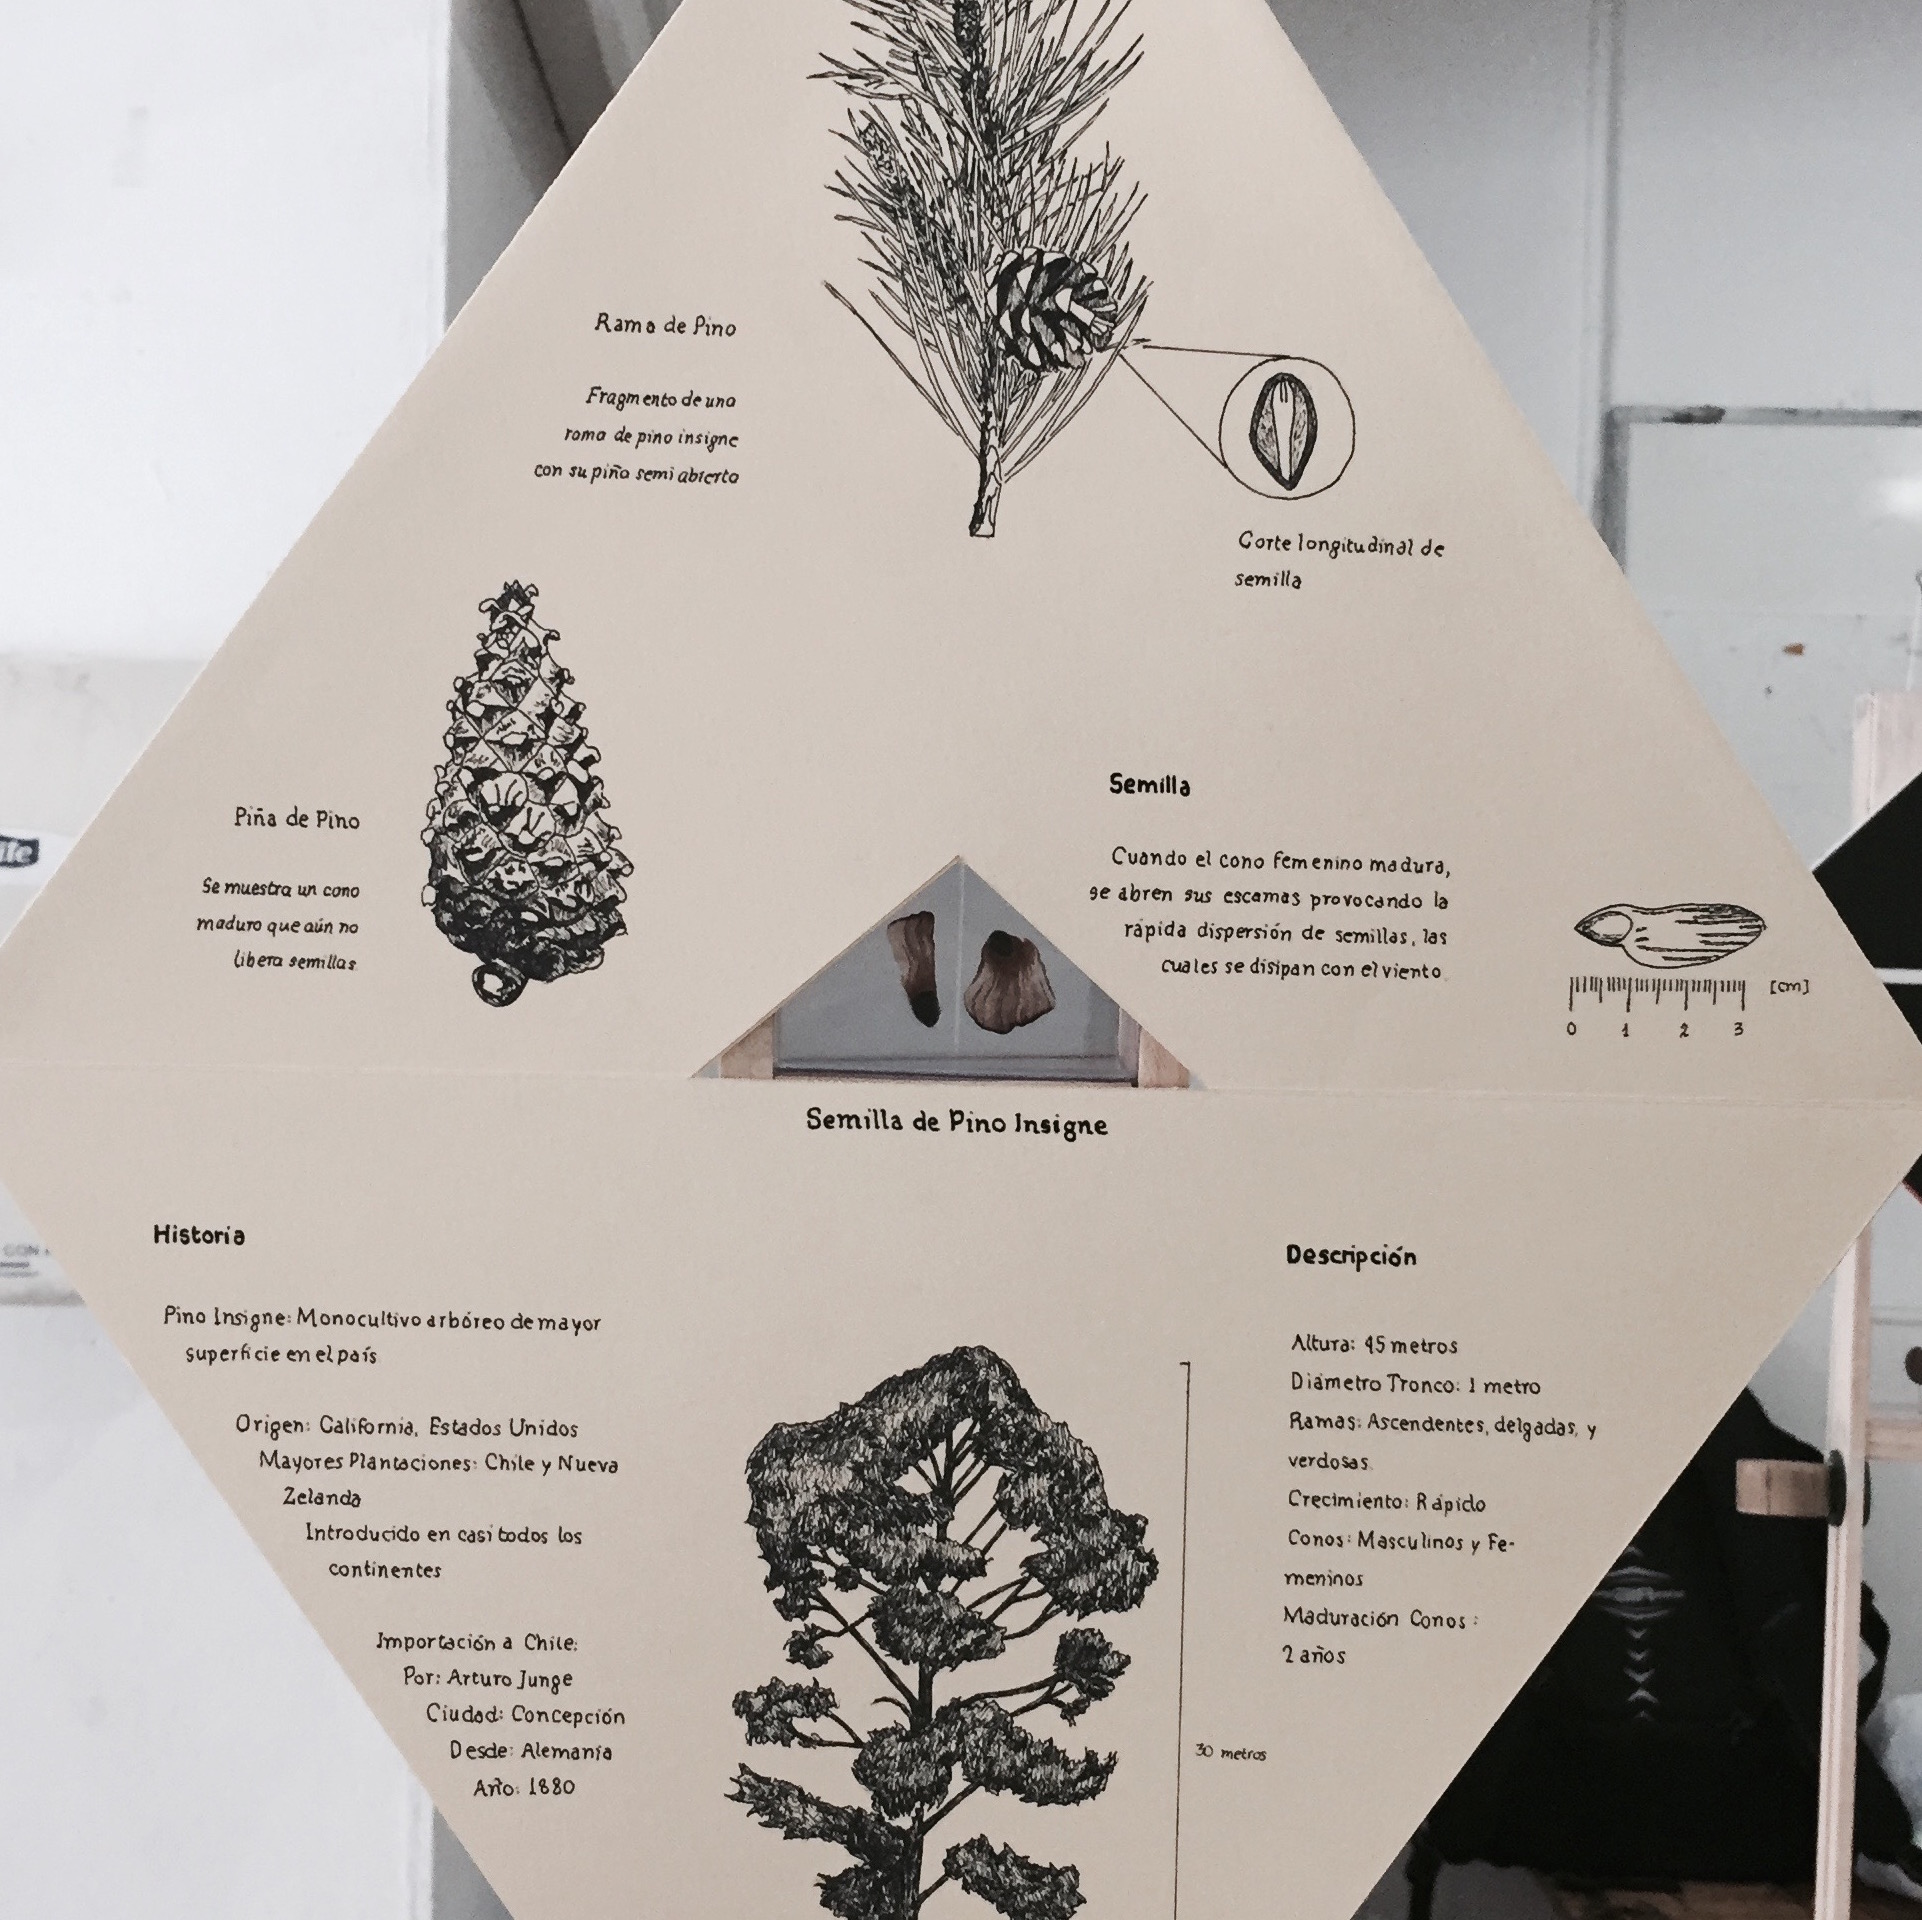 Rama de Pino
Fragmento de una
rama de pino insigne
con su piña semi abierta
Corte longitudinal de
semilla
Piña de Pino
Se muestra un cono
maduro que aún no
libera semillas
Semilla
Cuando el cono femenino madura,
se abren sus escamas provocando la
rápida dispersión de semillas, las
cuales se disipan con el viento.
[cm]
0 1 2 3
Semilla de Pino Insigne
Historia
Pino Insigne: Monocultivo arbóreo de mayor
superficie en el país
Origen: California, Estados Unidos
Mayores Plantaciones: Chile y Nueva
Zelanda
Introducido en casi todos los
continentes
Importación a Chile:
Por: Arturo Junge
Ciudad: Concepción
Desde: Alemania
Año: 1880
Descripción
Altura: 45 metros
Diámetro Tronco: 1 metro
Ramas: Ascendentes, delgadas, y
verdosas.
Crecimiento: Rápido
Conos: Masculinos y Fe-
meninos
Maduración Conos:
2 años
30 metros